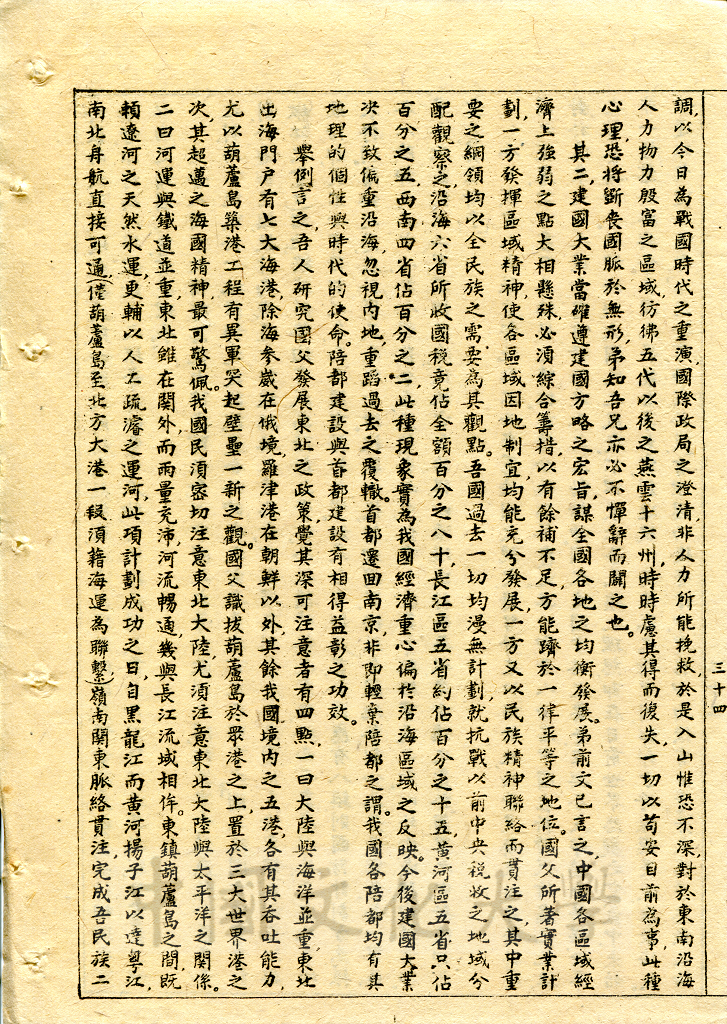 調，以今日為戰國時代之重演，國際政局之澄清，非人力所能挽救，於是入山惟恐不深，對於東南沿海
人力物力殷富之區域，彷彿五代以後之燕雲十六州，時時慮其得而復失，一切以苟安目前為事，此種
心理，恐將斷喪國脈於無形，弟知吾兄亦必不憚辭而闢之也。
其二，建國大業當確遵建國方略之宏旨，謀全國各地之均衡發展。弟前文已言之，中國各區域經
濟上強弱之點大相懸殊，必須綜合籌措，以有餘補不足，方能躋於一律平等之地位。國父所著實業計
劃，一方發揮區域精神，使各區域因地制宜，均能充分發展，一方又以民族精神聯絡而貫注之，其中重
要之綱領均以全民族之需要為其觀點。吾國過去一切均漫無計劃，就抗戰以前中央稅收之地域分
配觀察之，沿海六省所收國稅竟佔全額百分之八十，長江區五省約佔百分之十五，黃河區五省只佔
百分之五，西南四省佔百分之二，此種現象實為我國經濟重心偏於沿海區域之反映。今後建國大業
決不致偏重沿海，忽視內地，重蹈過去之覆轍。首都遷回南京，非即輕棄陪都之謂。我國各陪都均有其
地理的個性與時代的使命。陪都建設與首都建設有相得益彰之功效。
舉例言之，吾人研究國父發展東北之政策，覺其深可注意者有四點，一曰大陸與海洋並重，東北
出海門戶有七大海港，除海參崴在俄境，羅津港在朝鮮以外，其餘我國境內之五港，各有其吞吐能力，
尤以葫蘆島築港工程有異軍突起壁壘一新之觀。國父識拔葫蘆島於眾港之上，置於三大世界港之
次，其超邁之海國精神，最可驚佩。我國民須密切注意東北大陸，尤須注意東北大陸與太平洋之關係。
二曰河運與鐵道並重，東北雖在關外，而雨量充沛，河流暢通，幾與長江流域相侔。東鎮葫蘆島之間，既
賴遼河之天然水運，更輔以人工疏濬之運河，此項計劃成功之日，自黑龍江而黃河揚子江以達粵江，
南北舟航直接可通，（僅葫蘆島至北方大港一段須藉海運為聯繫）嶺南關東脈絡貫注，完成吾民族二
三十四
中國文化大學